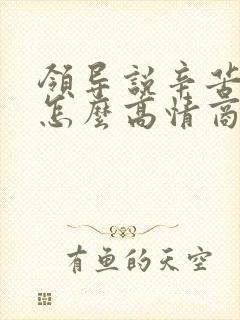 領导說辛苦
怎麼高情商
有鱼的天空